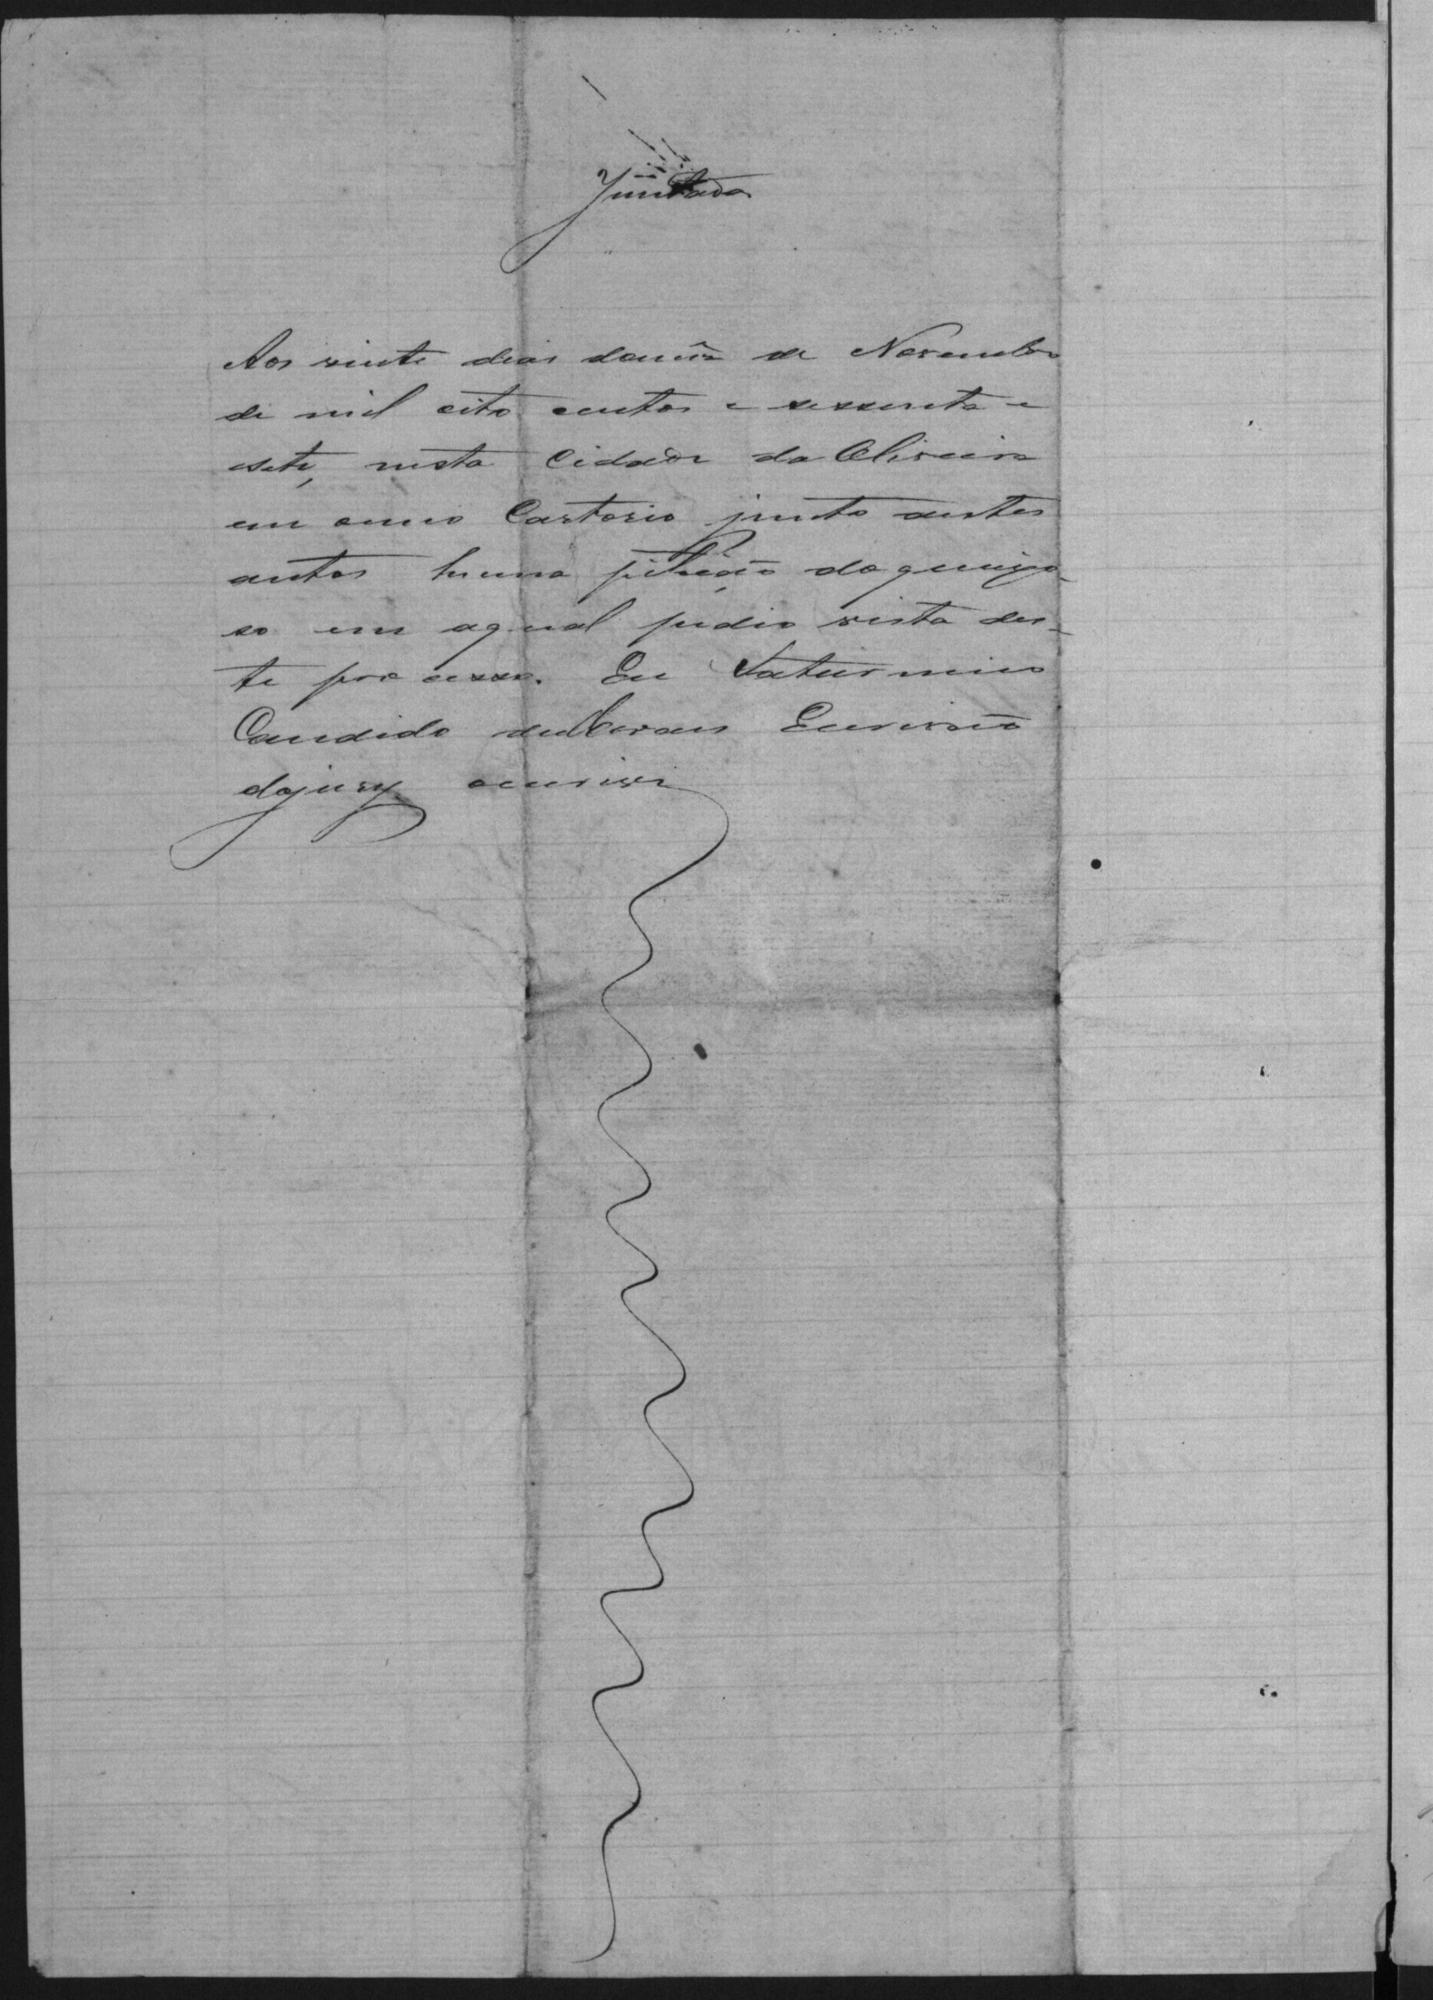 Juntada
Aos vinte dias domês de Novembro
de mil oito centos e sessenta e
sete, nesta Cidade da Oliveira
em omeo Cartorio junto aestes
autos huma petição doqueixo-
so em aqual pedio vista des-
te processo. Eu Saturnino
Candido Escrivão
dojury oescrivi